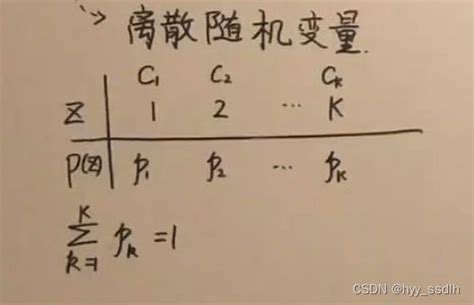 离散随机变量.
C₁ C₂ Cₖ
Z 1 2 … K
P(Z) p₁ p₂ … pₖ
∑ₖ₌₁ᴷ pₖ = 1
CSDN @hyy_ssdlh